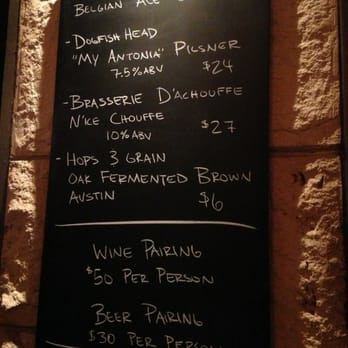 BELGIAN ALE
- DOGFISH HEAD
"MY ANTONIA" PILSNER
7.5% ABV $24
- BRASSERIE D'ACHOUFFE
N'ICE CHOUFFE
10% ABV $27
- HOPS & GRAIN
OAK FERMENTED BROWN
AUSTIN $6
WINE PAIRING
$50 PER PERSON
BEER PAIRING
$30 PER PERSON